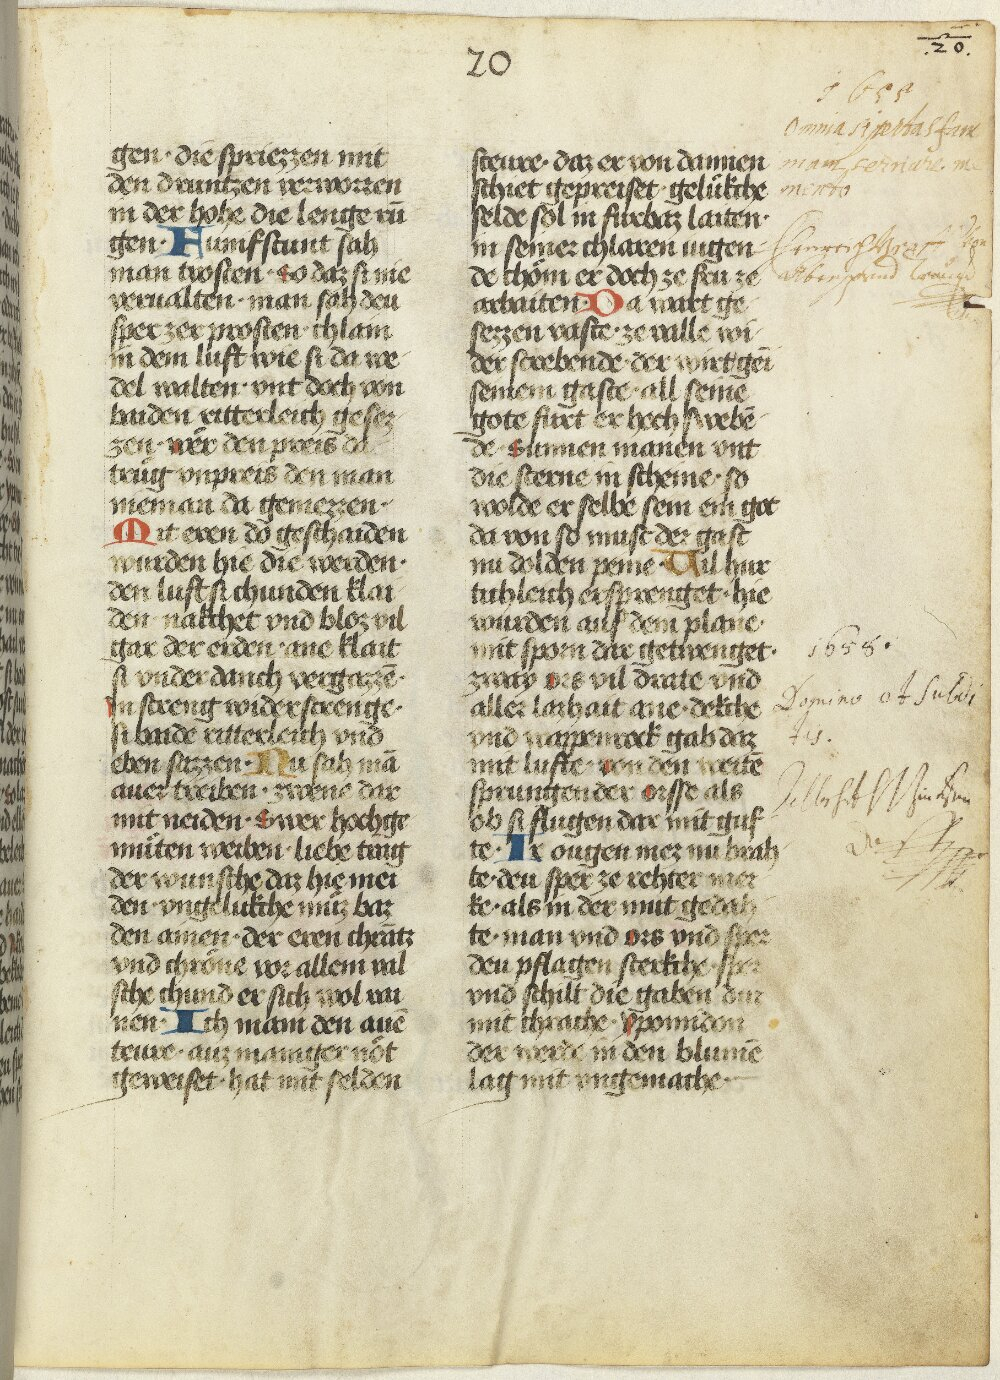 20
.20.
gen · die spriezzen mit
den druntzen verworren
in der hohe die lenge rū
gen · Fumfstunt sah
man trosten · so daz si nie
ververualten · man sah deu
sper zer prosten · chlam
in dem luft wie si da we
del walten · vnt doch von
baiden ritterleich gesez
zen · wer den preis da
trůg vnpreis den man
nieman da gemezzen ·
Mit eren do geschaiden
wurden hie die werden ·
den luft si chunden klai
den · nakchet vnd bloz vil
gar der erden · ane klait
si vnder danch vergazzē ·
in streng wider strenge ·
si baide ritterleich vnd
eben sazzen · Nu sah mā
auer treiben · zwene dar
mit neiden · swer hochge
můten weiben · liebe trug
der wunsche daz hie mei
den · vngelukche můz baz
den amen · der eren chrātz
vnd chröne vor allem val
sche chund er sich wol wa
nen · Ich main den auē
teure · auz maniger nöt
geweiset · hat mit selden
steure · daz er von dannen
schiet gepreiset · gelükche
selde sol in fürbaz laiten ·
in seiner chlaren iugen
de chöm er doch ze feu ze
arbaiten · Da wart ge
sezzen vaste · ze valle wi
der strebende · der wirt gēi
seinem gaste · all seine
gote fürt er hoch swebē
de · sunnen manen vnt
die sterne in scheine · so
wolde er selbe sein ein got
da von so must der gast
nu dolden peine · Vil hur
tichleich ersprenget · hie
wurden auf dem plane ·
mit sporn dar getwenget ·
zway ors vil drate vnd
aller lazhait ane · dekche
vnd wappenrock gab daz
mit lufte · von den weitē
sprungen der orsse als
ob si flugen dar mit guf
te · Ir ougen mez nu brah
te · deu sper ze rehter mer
ke · als in der mut gedah
te · man vnd ors vnd sper
deu pflagen sterkche · sper
vnd schilt die gaben dar
mit chrache · Yponidon
der werde in den blumē
lag mit vngemache ·
1655
Omnia si perdas fam
mam servare me
mento
1658.
Domino et subdi
tis.